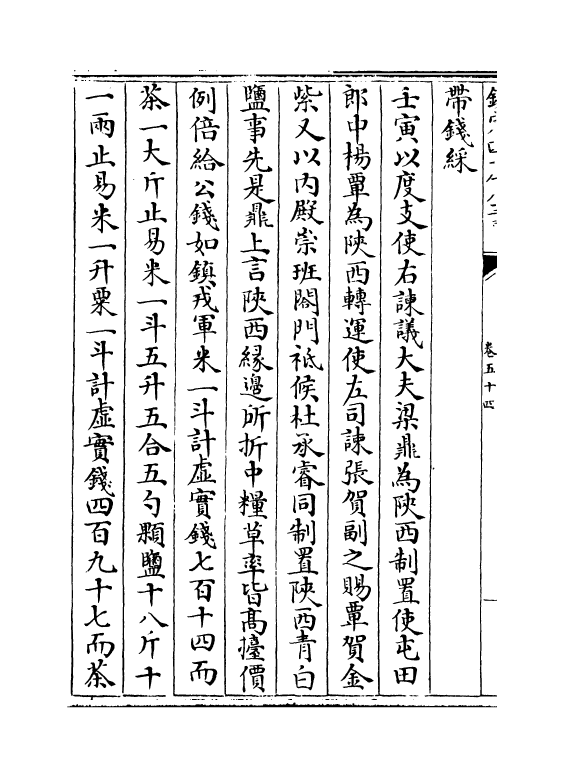 卷五十四
帶錢綵
壬寅以度支使右諫議大夫梁鼎為陝西制置使屯田
郎中楊覃為陝西轉運使左司諫張賀副之賜覃賀金
紫又以内殿崇班閤門祗候杜承睿同制置陝西青白
鹽事先是鼎上言陝西緣邊所折中糧草率皆髙擡價
例倍給公錢如鎮戎軍米一斗計虚實錢七百十四而
茶一大斤止易米一斗五升五合五勺顆鹽十八斤十
一兩止易米一升粟一斗計虚實錢四百九十七而茶